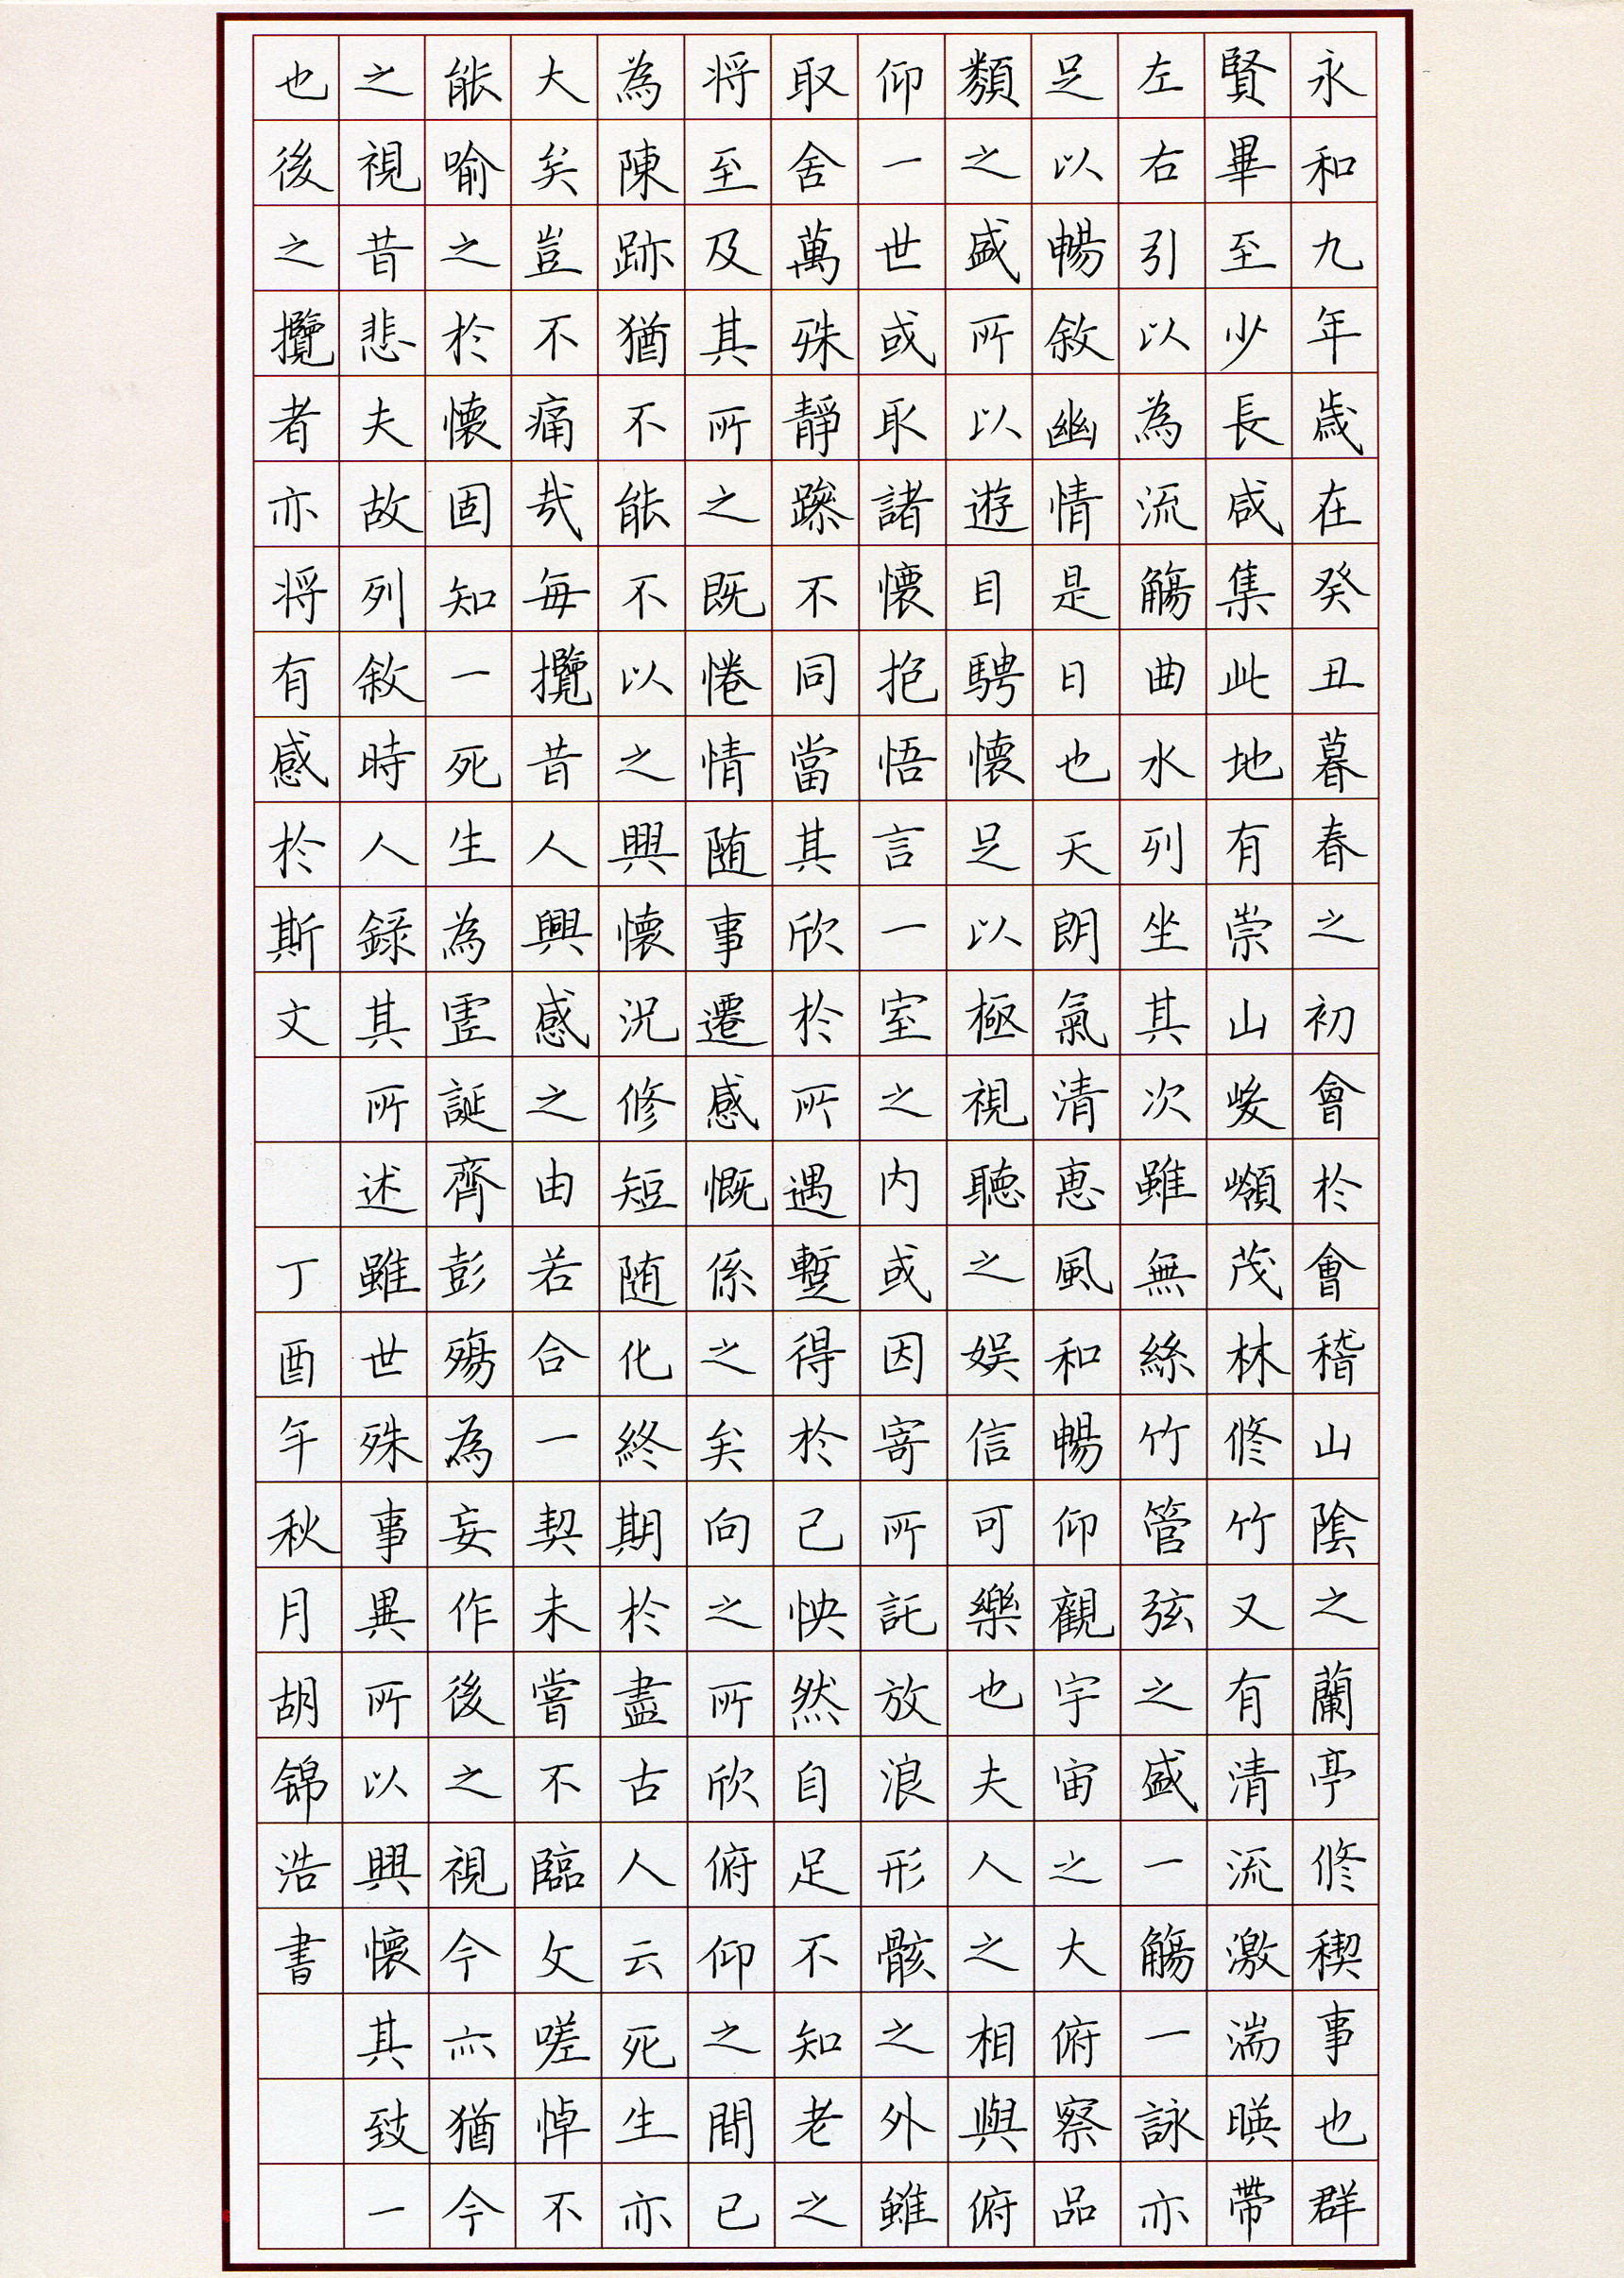 永和九年歳在癸丑暮春之初會於會稽山陰之蘭亭修稧事也群
賢畢至少長咸集此地有崇山峻嶺茂林修竹又有清流激湍暎帶
左右引以為流觴曲水列坐其次雖無絲竹管弦之盛一觴一詠亦
足以暢敘幽情是日也天朗氣清惠風和暢仰觀宇宙之大俯察品
類之盛所以遊目騁懷足以極視聽之娛信可樂也夫人之相與俯
仰一世或取諸懷抱悟言一室之内或因寄所託放浪形骸之外雖
取舍萬殊靜躁不同當其欣於所遇蹔得於己怏然自足不知老之
将至及其所之既惓情随事遷感慨係之矣向之所欣俯仰之間已
為陳跡猶不能不以之興懷況修短随化終期於盡古人云死生亦
大矣豈不痛哉每攬昔人興感之由若合一契未嘗不臨文嗟悼不
能喻之於懷固知一死生為虛誕齊彭殤為妄作後之視今亦猶今
之視昔悲夫故列敘時人錄其所述雖世殊事異所以興懷其致一
也後之攬者亦将有感於斯文 丁酉年秋月胡锦浩書